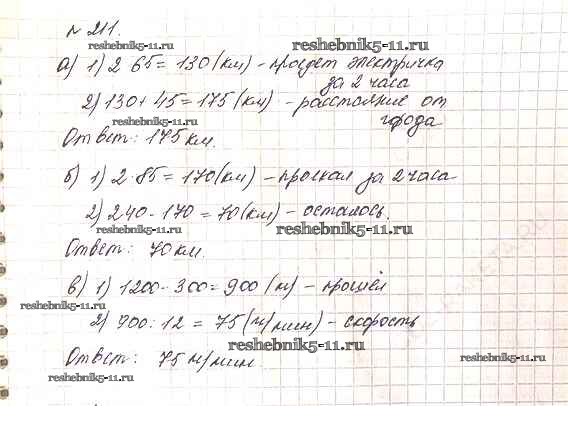 № 211.
reshebnik5-11.ru reshebnik5-11.ru
а) 1) 2 65 = 130 (км) - проедет электричка
за 2 часа
2) 130 + 45 = 175 (км) - расстояние от
reshebnik5-11.ru города
Ответ: 175 км.
б) 1) 2 · 85 = 170 (км) - проехал за 2 часа
2) 240 - 170 = 70 (км) - осталось.
reshebnik5-11.ru reshebnik5-11.ru
Ответ: 70 км.
в) 1) 1200 - 300 = 900 (м) - прошёл
reshebnik5-11.ru
2) 900 : 12 = 75 (м/мин) - скорость
reshebnik5-11.ru
Ответ: 75 м/мин.
reshebnik5-11.ru
reshebnik5-11.ru